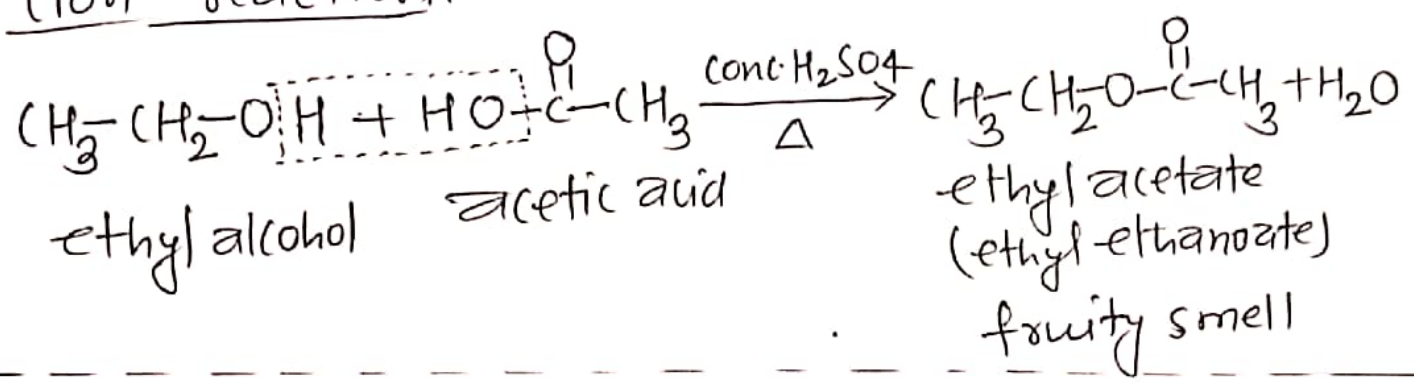 O O
CH3-CH2-O H + HO-C-CH3 conc. H2SO4 → CH3-CH2-O-C-CH3 + H2O
Δ
ethyl alcohol acetic acid ethyl acetate
(ethyl ethanoate)
fruity smell